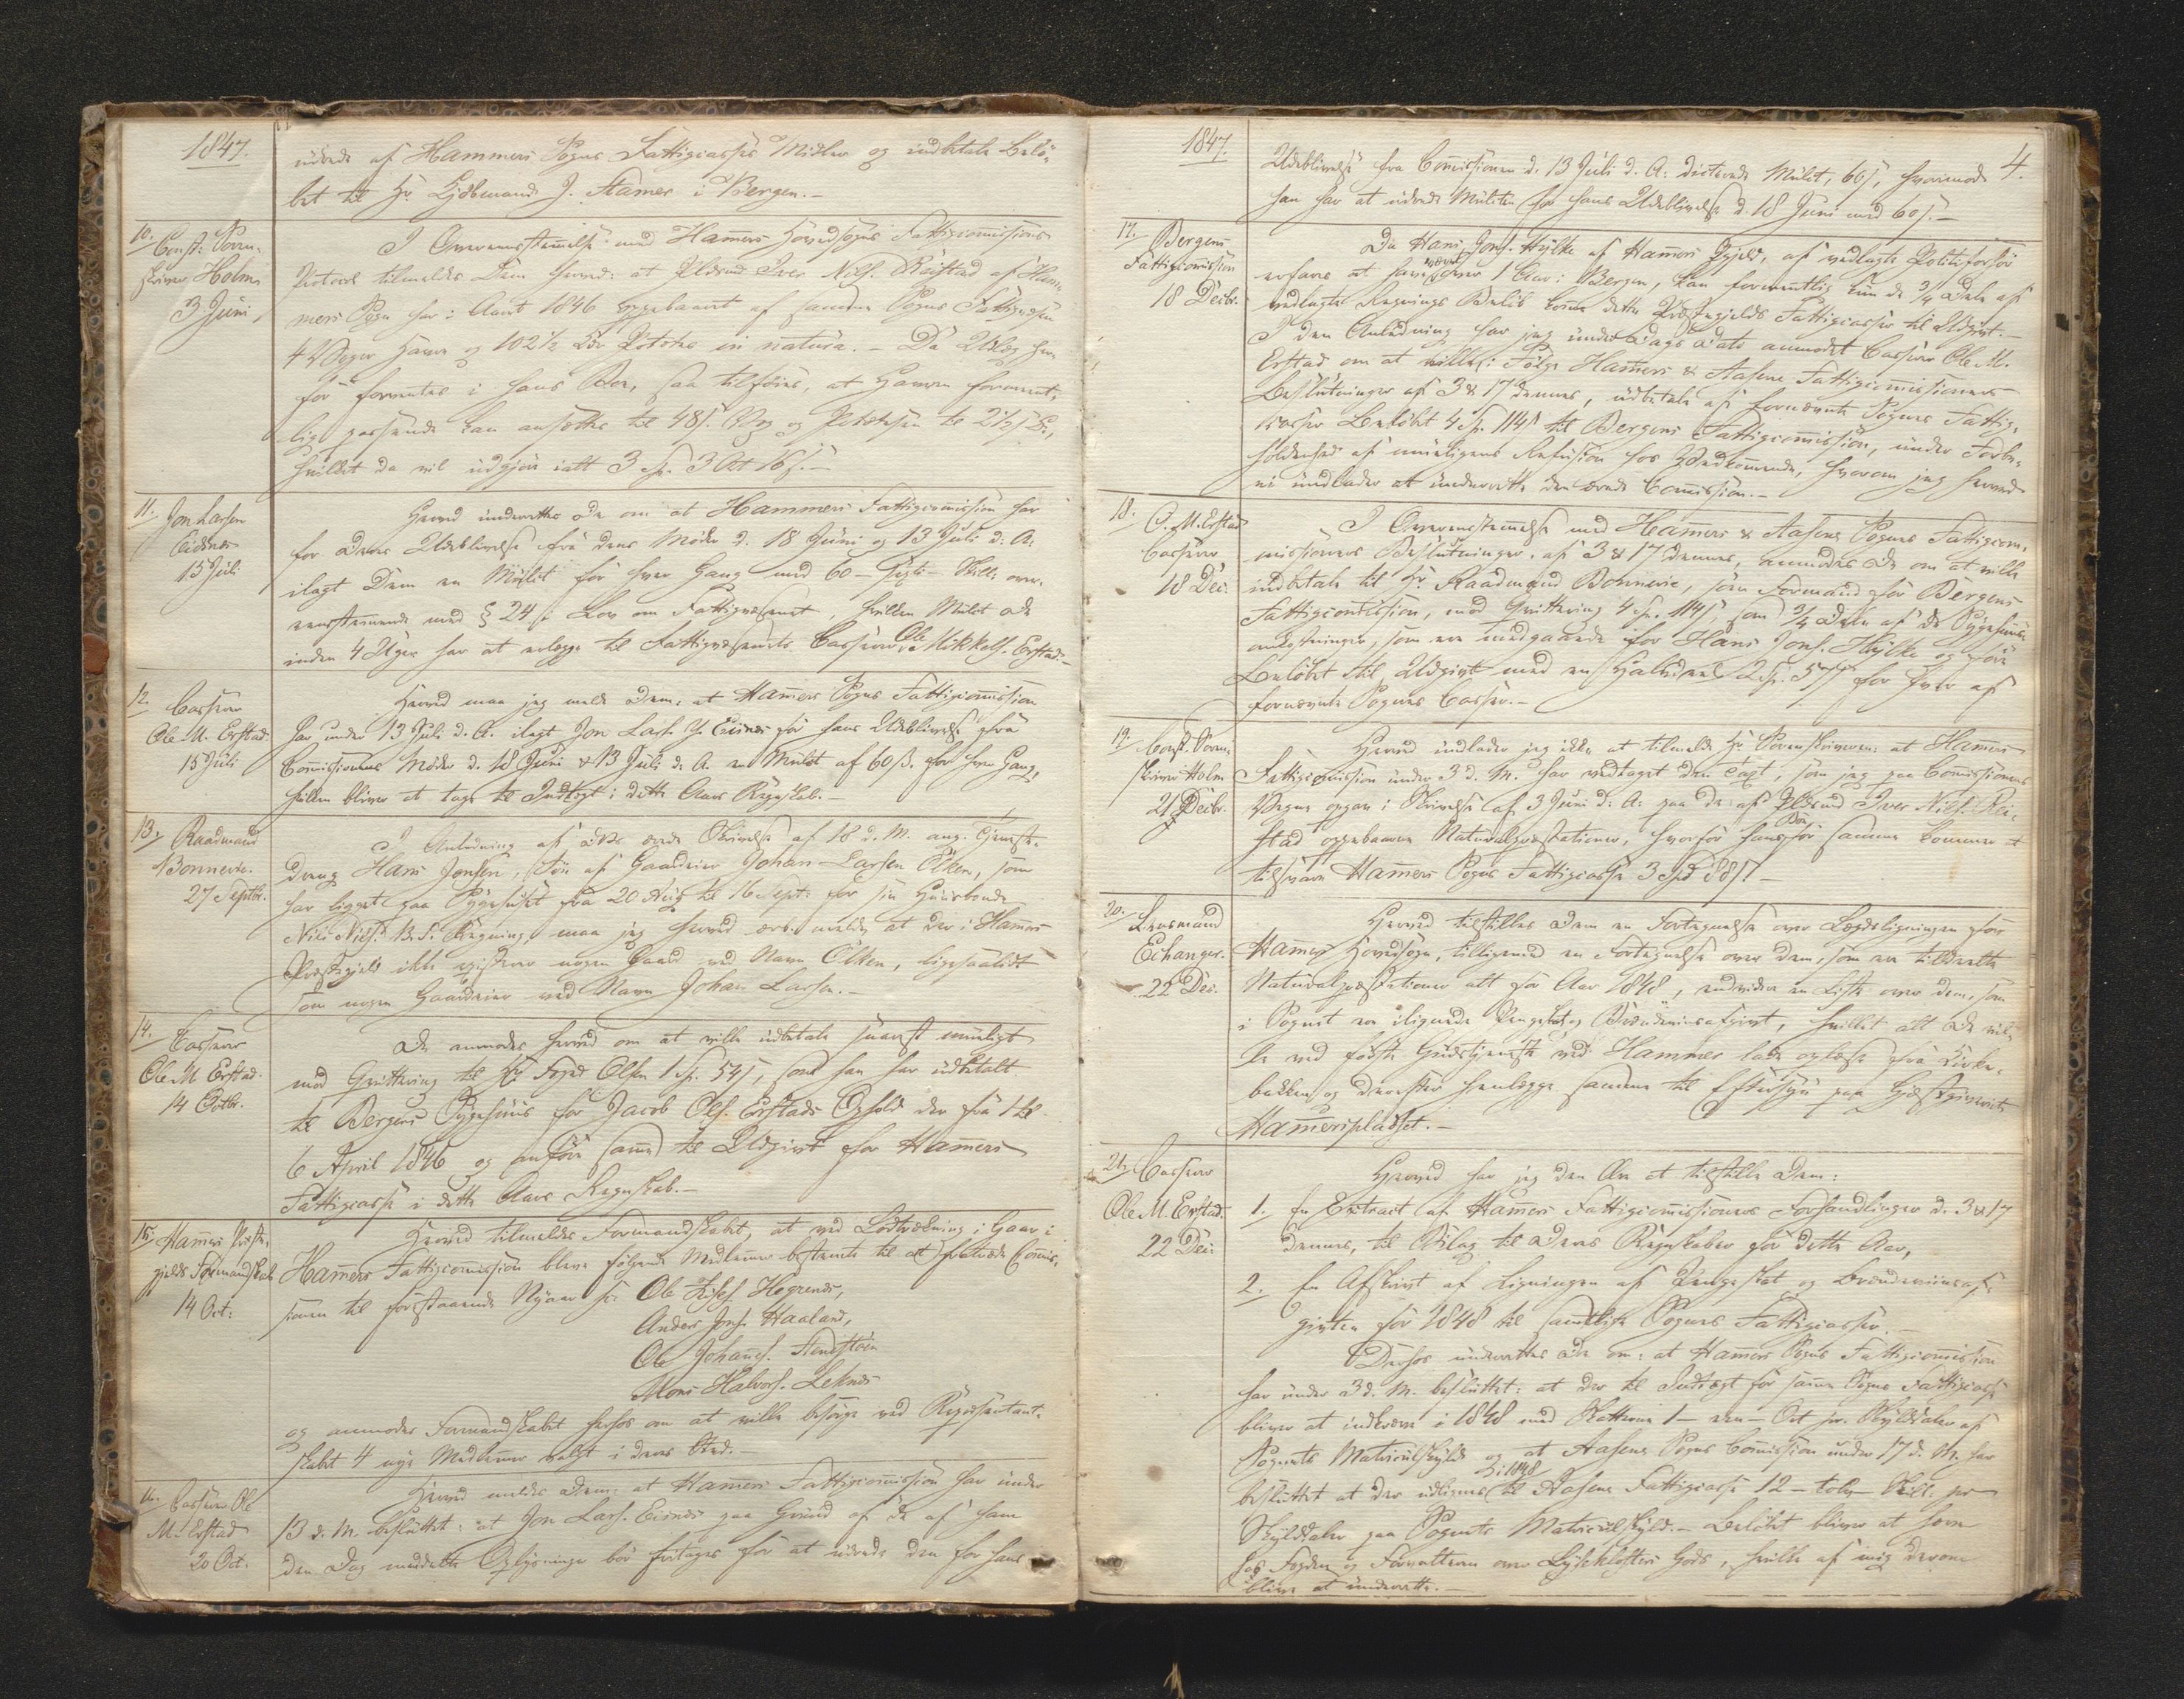 1847.
udrede af Hammers Sogns Fattigcasses Midler og indbetale Belö-
bet til Hr. Kjöbmand J. Stamer i Bergen.-
10. Const: Soren-
skriver Holm
3 Juni
I Overeensstemmelse med Hamers Hovedsogns Fattigcommissions
Protocol tilmeldes Dem herved: at Iver Nils. Reistad af Ham-
mers Sogn har i Aaret 1846 oppebaaret af samme Sogns Fattigvæsen
4 Voger Havre og 102½ Potetes in natura.- Da
for forventes i hans Boe, saa tilföies, at Havren forment-
lig passende kan ansættes til 48s. Vog og Potetesen til 2½s
hvilket da vil udgjöre ialt 3 Sp. 3 Ort 16s.-
11. Jon Larsen
Eidsnes
15 Juli
Herved underrettes De om at Hammers Fattigcomission har
for Deres Udeblivelse fra dens Möder d. 18 Juni og 13 Juli d: A:
ilagt Dem en Mulct for hver Gang med 60 - Skill: over-
eensstemmende med § 24 i Lov om Fattigvæsenet, hvilken Mulct De
inden 4 Uger har at erlægge til Fattigvæsenets Casserer Ole Mikkels. Erstad.-
12. Casserer
Ole M. Erstad
15 Juli
Herved maa jeg melde Dem: at Hamers Sogns Fattigcomission
har under 13 Juli d. A. ilagt Jon Lars. Y. Eisnes for hans Udeblivelse fra
Comissionens Möder d. 18 Juni & 13 Juli d. A. en Mulct af 60 s. for hver Gang,
hvilken bliver at tage til Indtægt i dette Aars Regnskab.-
13. Raadmand
Bonnevie.
27 Septbr.
I Anledning af Deres ærede Skrivelse af 18 d. M. ang. Tjeneste-
dreng Hans Jonsen, Sön af Gaardeier Johan Larsen Ölken, som
har ligget paa Sygehuset fra 20 Aug til 16 Sept: for sin Huusbonds
Nils Niels. Regning, maa jeg herved ærb. melde at der i Hamers
Præstegjeld ikke existerer nogen Gaard ved Navn Ölken, ligesaalidt
som nogen Gaardeier ved Navn Johan Larsen.-
14. Casserer
Ole M Erstad.
14 Octbr.
De anmodes herved om at ville udbetale snarest mueligt
mod Qvittering til Hr. Foged Olsen 1 Sp. 54s, som han har udbetalt
til Bergens Sygehuus for Jacob Ols. Erstads Ophold der fra 1 til
6 April 1846 og anföre samme til Udgivt for Hamers
Fattigcasse i dette Aars Regnskab.-
15. Hamers Præste-
gjelds Formandskab
14 Oct:
Herved tilmeldes Formandskabet, at ved Lodtrækning i Gaar i
Hamers Fattigcomission bleve fölgende Medlemer bestemte til at fratræde Comis-
sionen til forestaaende Nyaar
Ole Hegrenes,
Anders Jons. Haaland,
Ole Johannes. Steenstöen
Mons Halvors. Leknes
og anmodes Formandskabet herhos om at ville besörge ved Repræsentant-
skabet 4 nye Medlemer valgt i deres Sted.-
16. Casserer Ole
M. Erstad
20 Oct:
Herved meldes Dem: at Hamers Fattigcomission har under
13 d. M. besluttet: at Jon Lars. Eisnes paa Grund af de af ham
den Dag meddelte Oplysninger bör fritages for at udrede den for hans
1847.
4.
Udeblivelse fra Comissionen d. 13 Juli d. A: dicterede Mulct, 60s, hvorimod
han har at udrede Mulcten for hans Udeblivelse d. 18 Juni med 60s.-
17. Bergens
Fattigcomission
18 Decbr.
Da Hans Jons. Hylke af Hamers Pgjeld, af vedlagte Politiforhör
erfares at have været over 1 Aar i Bergen, kan formentlig kun de ¾ Dele af
vedlagte Regnings Belöb komme dette Præstegjelds Fattigcasser til Udgivt.-
I den Anledning har jeg under Dags Dato anmodet Casserer Ole M.
Erstad om at ville i Fölge Hamers & Aasene Fattigcomissioners
Beslutninger af 3 & 17 dennes, udbetale af fornævnte Sognes Fattig-
casser Belöbet 4 Sp. 114s til Bergens Fattigcomission, under Forbe-
holdenhed af mueligens Refusion hos Vedkommende, hvorom jeg herved
ei undlader at underrette den ærede Comission.-
18. O. M. Erstad
Casserer
18 Dec:
I Overensstemmelse med Hamers & Aasene Sognes Fattigcom-
missioners Beslutninger af 3 & 17 dennes, anmodes De om at ville
indbetale til Hr. Raadmand Bonnevie, som Formand for Bergens
Fattigcomission, mod Qvittering 4 Sp. 114s, som ¾ Dele af de Sygehuus-
omkostninger, som ere medgaaede for Hans Jons. Hylke og före
Belöbet til Udgivt med en Halvdeel 2 Sp. 57s for hver af
fornævnte Sognes Casser.-
19. Const. Soren-
skriver Holm
21 Decbr.
Herved undlader jeg ikke at tilmelde Hr. Sorenskriveren: at Hamers
Fattigcomission under 3 d. M. har vedtaget den Taxt, som jeg paa Comissionens
Vegne opgav i Skrivelse af 3 Juni d: A: paa de af Iver Nils. Rei-
stad oppebaarne Naturalpræstationer, hvorfor hans Boe for samme kommer at
tilsvare Hamers Sogns Fattigcasse 3 Spd 88s.-
20. Lensmand
Echanger.
22 Dec.
Herved tilstilles Dem en Fortegnelse over Lægdsligningen for
Hamers Hovedsogn, tilligemed en Fortegnelse over dem, som ere tildeelte
Naturalpræstationer alt for Aar 1848, endvidere en Liste over dem, som
i Sognet ere ilignede Pengeskat og Brændeviinsafgivt, hvilket alt De vil-
le ved förste Gudstjeneste ved Hammer lade oplæse fra Kirke-
bakken, og derefter henlægge samme til Eftersyn paa Gjæstgiveriet
Hamerspladset.-
21. Casserer
Ole M. Erstad.
22 Dec:
Herved har jeg den Ære at tilstille Dem:
1. En Extract af Hamers Fattigcomissions Forhandlinger d. 3 & 17
dennes, til Bilag til Deres Regnskaber for dette Aar,
2. En Afskrivt af Ligningen af Pengeskat og Brændeviinsaf-
givten for 1848 til samtlige Sognes Fattigcasser.-
Derhos underrettes De om: at Hamers Sogns Fattigcomission
har under 3 d. M. besluttet: at der til Indtægt for samme Sogns Fattigcasse
bliver at indkræve i 1848 med Skatterne 1 - een - Ort pr. Skylddaler af
Sognets Matriculskyld og at Aasene Sogns Comission under 17 d. M. har
besluttet at der udlignes i 1848 til Aasene Fattigcasse 12 - tolv - Skill. pr
Skylddaler paa Sognets Matriculskyld.- Belöbet bliver at hæve
hos Fogden og Forvalteren over Lysekloster Gods, hvilke af mig derom
blive at underrette.-